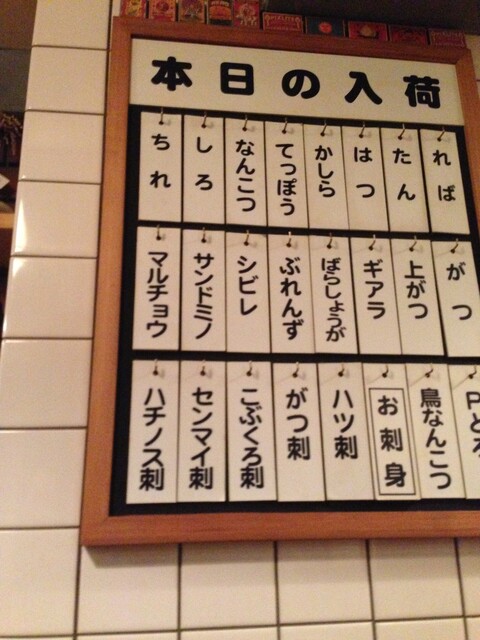 本日の入荷
れば
たん
はつ
かしら
てっぽう
なんこつ
しろ
ちれ
がつ
上がつ
ギアラ
ばらしょうが
ぶれんず
シビレ
サンドミノ
マルチョウ
Pとろ
鳥なんこつ
お刺身
ハツ刺
がつ刺
こぶくろ刺
センマイ刺
ハチノス刺